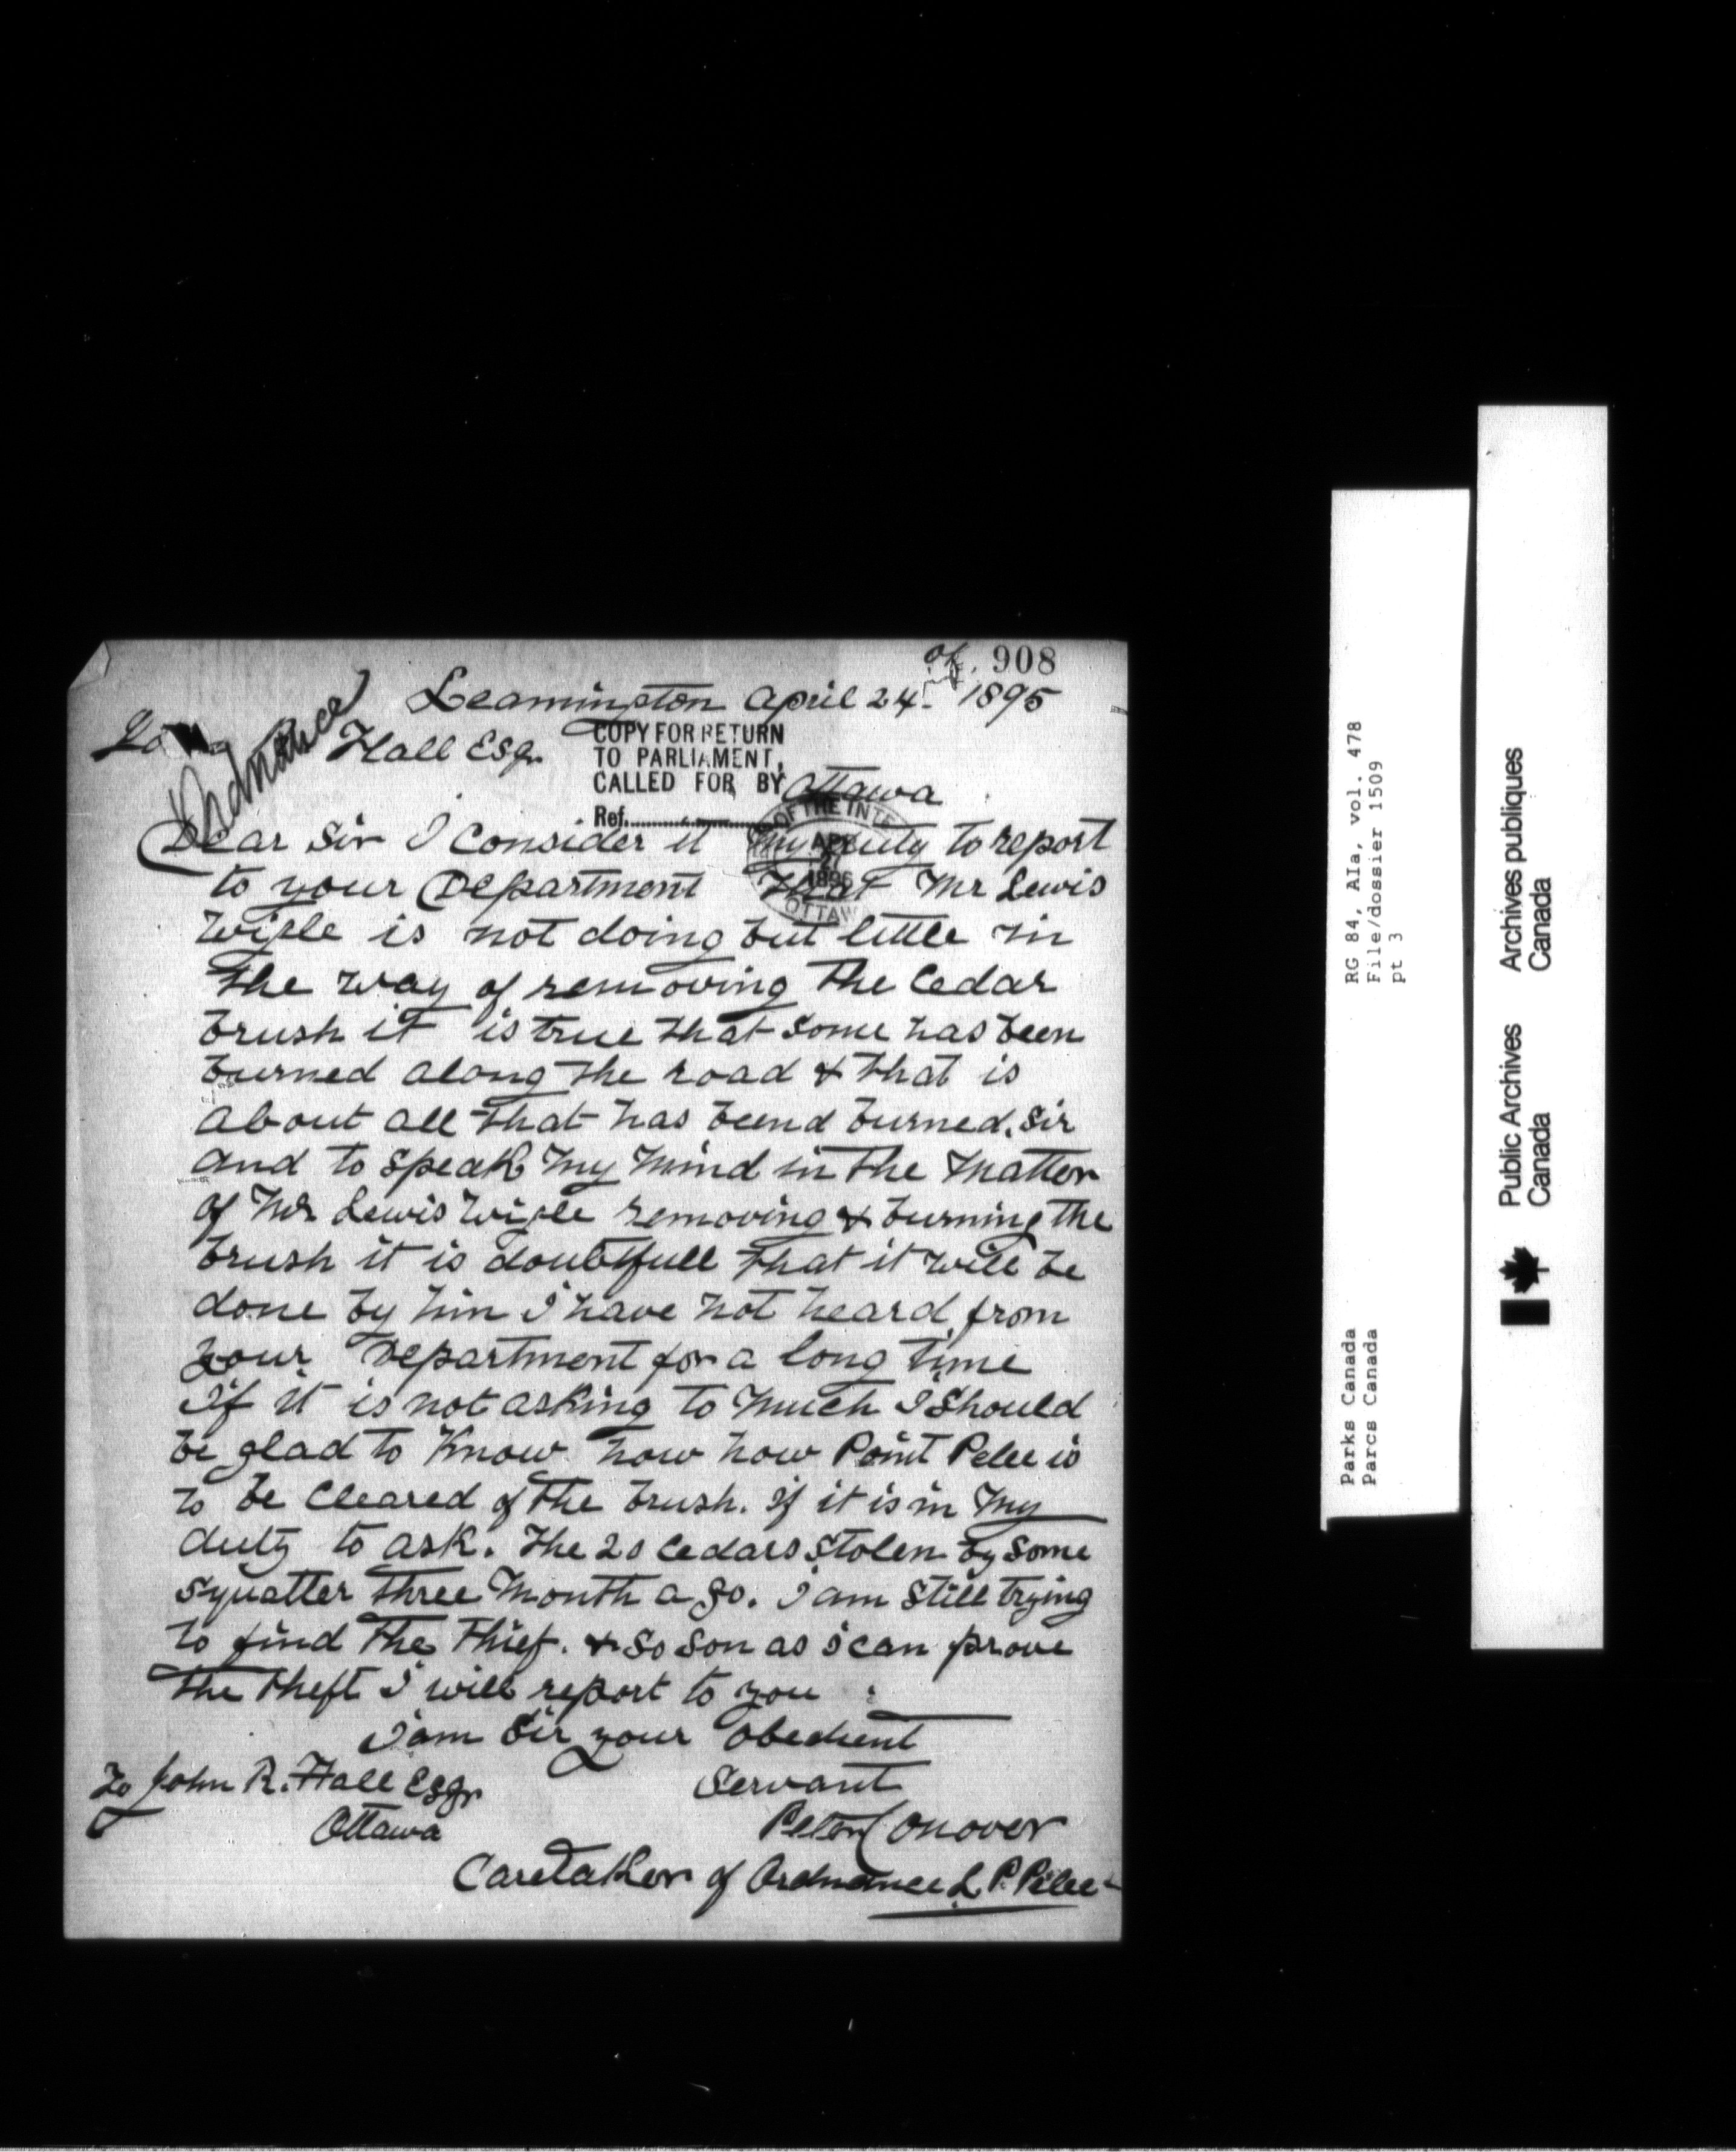 of. 908
Leamington April 24th 1895
To
Hall Esqr
Ordnance
COPY FOR RETURN
TO PARLIAMENT,
CALLED FOR BY
Ref.
Ottawa
OF THE INTE
OTTAW
Dear Sir I Consider it my duty to report
to your Department that Mr Lewis
Wigle is not doing but little in
the way of removing the Cedar
brush it is true that some has been
burned along the road & that is
about all that has beend burned. Sir
and to speak my mind in the matter
of Mr Lewis Wigle removing & burning the
brush it is doubtfull that it will be
done by him I have not heard from
your Department for a long time
If it is not asking to much I Should
be glad to Know how how Point Pelee is
to be Cleared of the brush. if it is in my
duty to ask. The 20 Cedars Stolen by some
squatter three month a go. I am still trying
to find the thief. & so son as i can prove
the theft I will report to you
I am Sir your obedient
Servant
To John R. Hall Esqr
Ottawa
Peter Conover
Caretaker of Ordnance L P. Pelee
RG 84, AIa, vol. 478
File/dossier 1509
pt 3
Parks Canada
Parcs Canada
Public Archives
Canada
Archives publiques
Canada